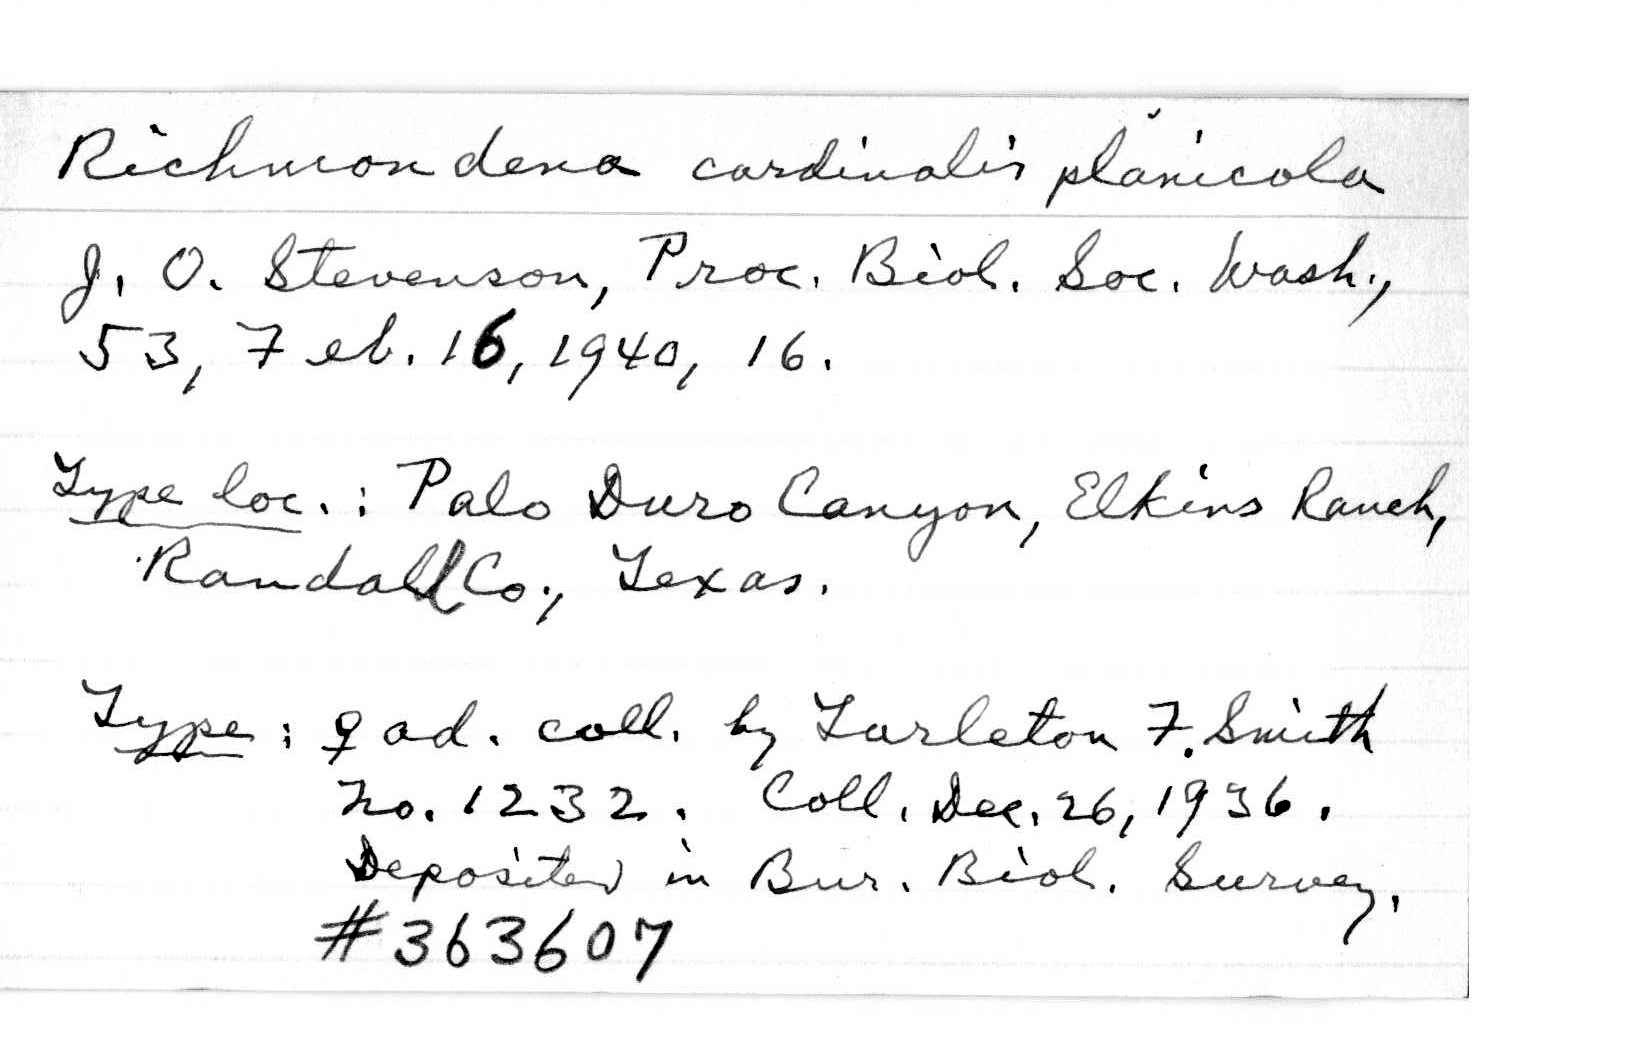 Richmondena cardinalis planicola
J. O. Stevenson, Proc. Biol. Soc. Wash.,
53, Feb. 16, 1940, 16.
Type loc.: Palo Duro Canyon, Elkins Ranch,
Randall Co., Texas.
Type: ♀ ad. coll. by Tarleton F. Smith
No. 1232. Coll. Dec. 26, 1936.
Deposited in Bur. Biol. Survey.
#363607